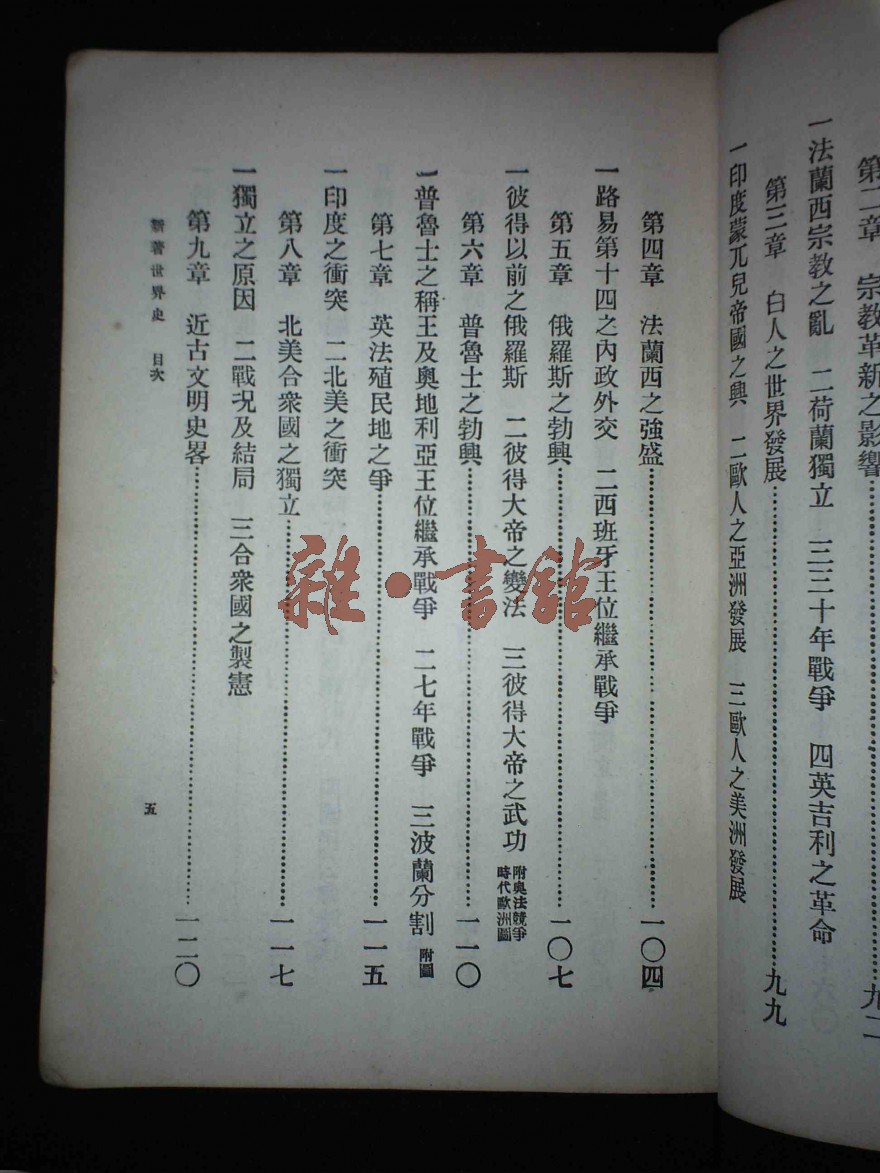 第二章　宗教革新之影響……九二
一法蘭西宗教之亂　二荷蘭獨立　三三十年戰爭　四英吉利之革命
第三章　白人之世界發展……九九
一印度蒙兀兒帝國之興　二歐人之亞洲發展　三歐人之美洲發展
第四章　法蘭西之強盛……一〇四
一路易第十四之內政外交　二西班牙王位繼承戰爭
第五章　俄羅斯之勃興……一〇七
一彼得以前之俄羅斯　二彼得大帝之變法　三彼得大帝之武功　附奧法競爭時代歐洲圖
第六章　普魯士之勃興……一一〇
一普魯士之稱王及奧地利亞王位繼承戰爭　二七年戰爭　三波蘭分割　附圖
第七章　英法殖民地之爭……一一五
一印度之衝突　二北美之衝突
第八章　北美合衆國之獨立……一一七
一獨立之原因　二戰況及結局　三合衆國之製憲
第九章　近古文明史畧……一二〇
新著世界史　目次
五
雜·書館